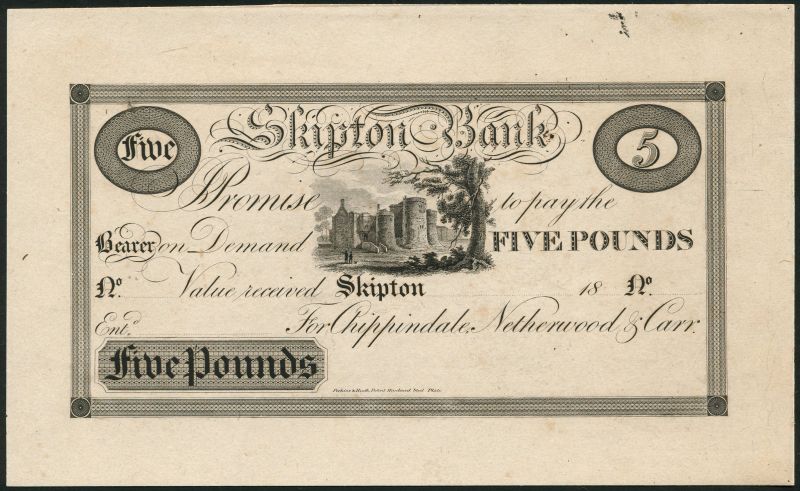 Five Skipton Bank 5
I Promise to pay the
Bearer on Demand FIVE POUNDS
No. Value received Skipton 18 No.
Entd. For Chippindale, Netherwood & Carr.
Five Pounds
Perkins & Heath, Patent Hardened Steel Plate.